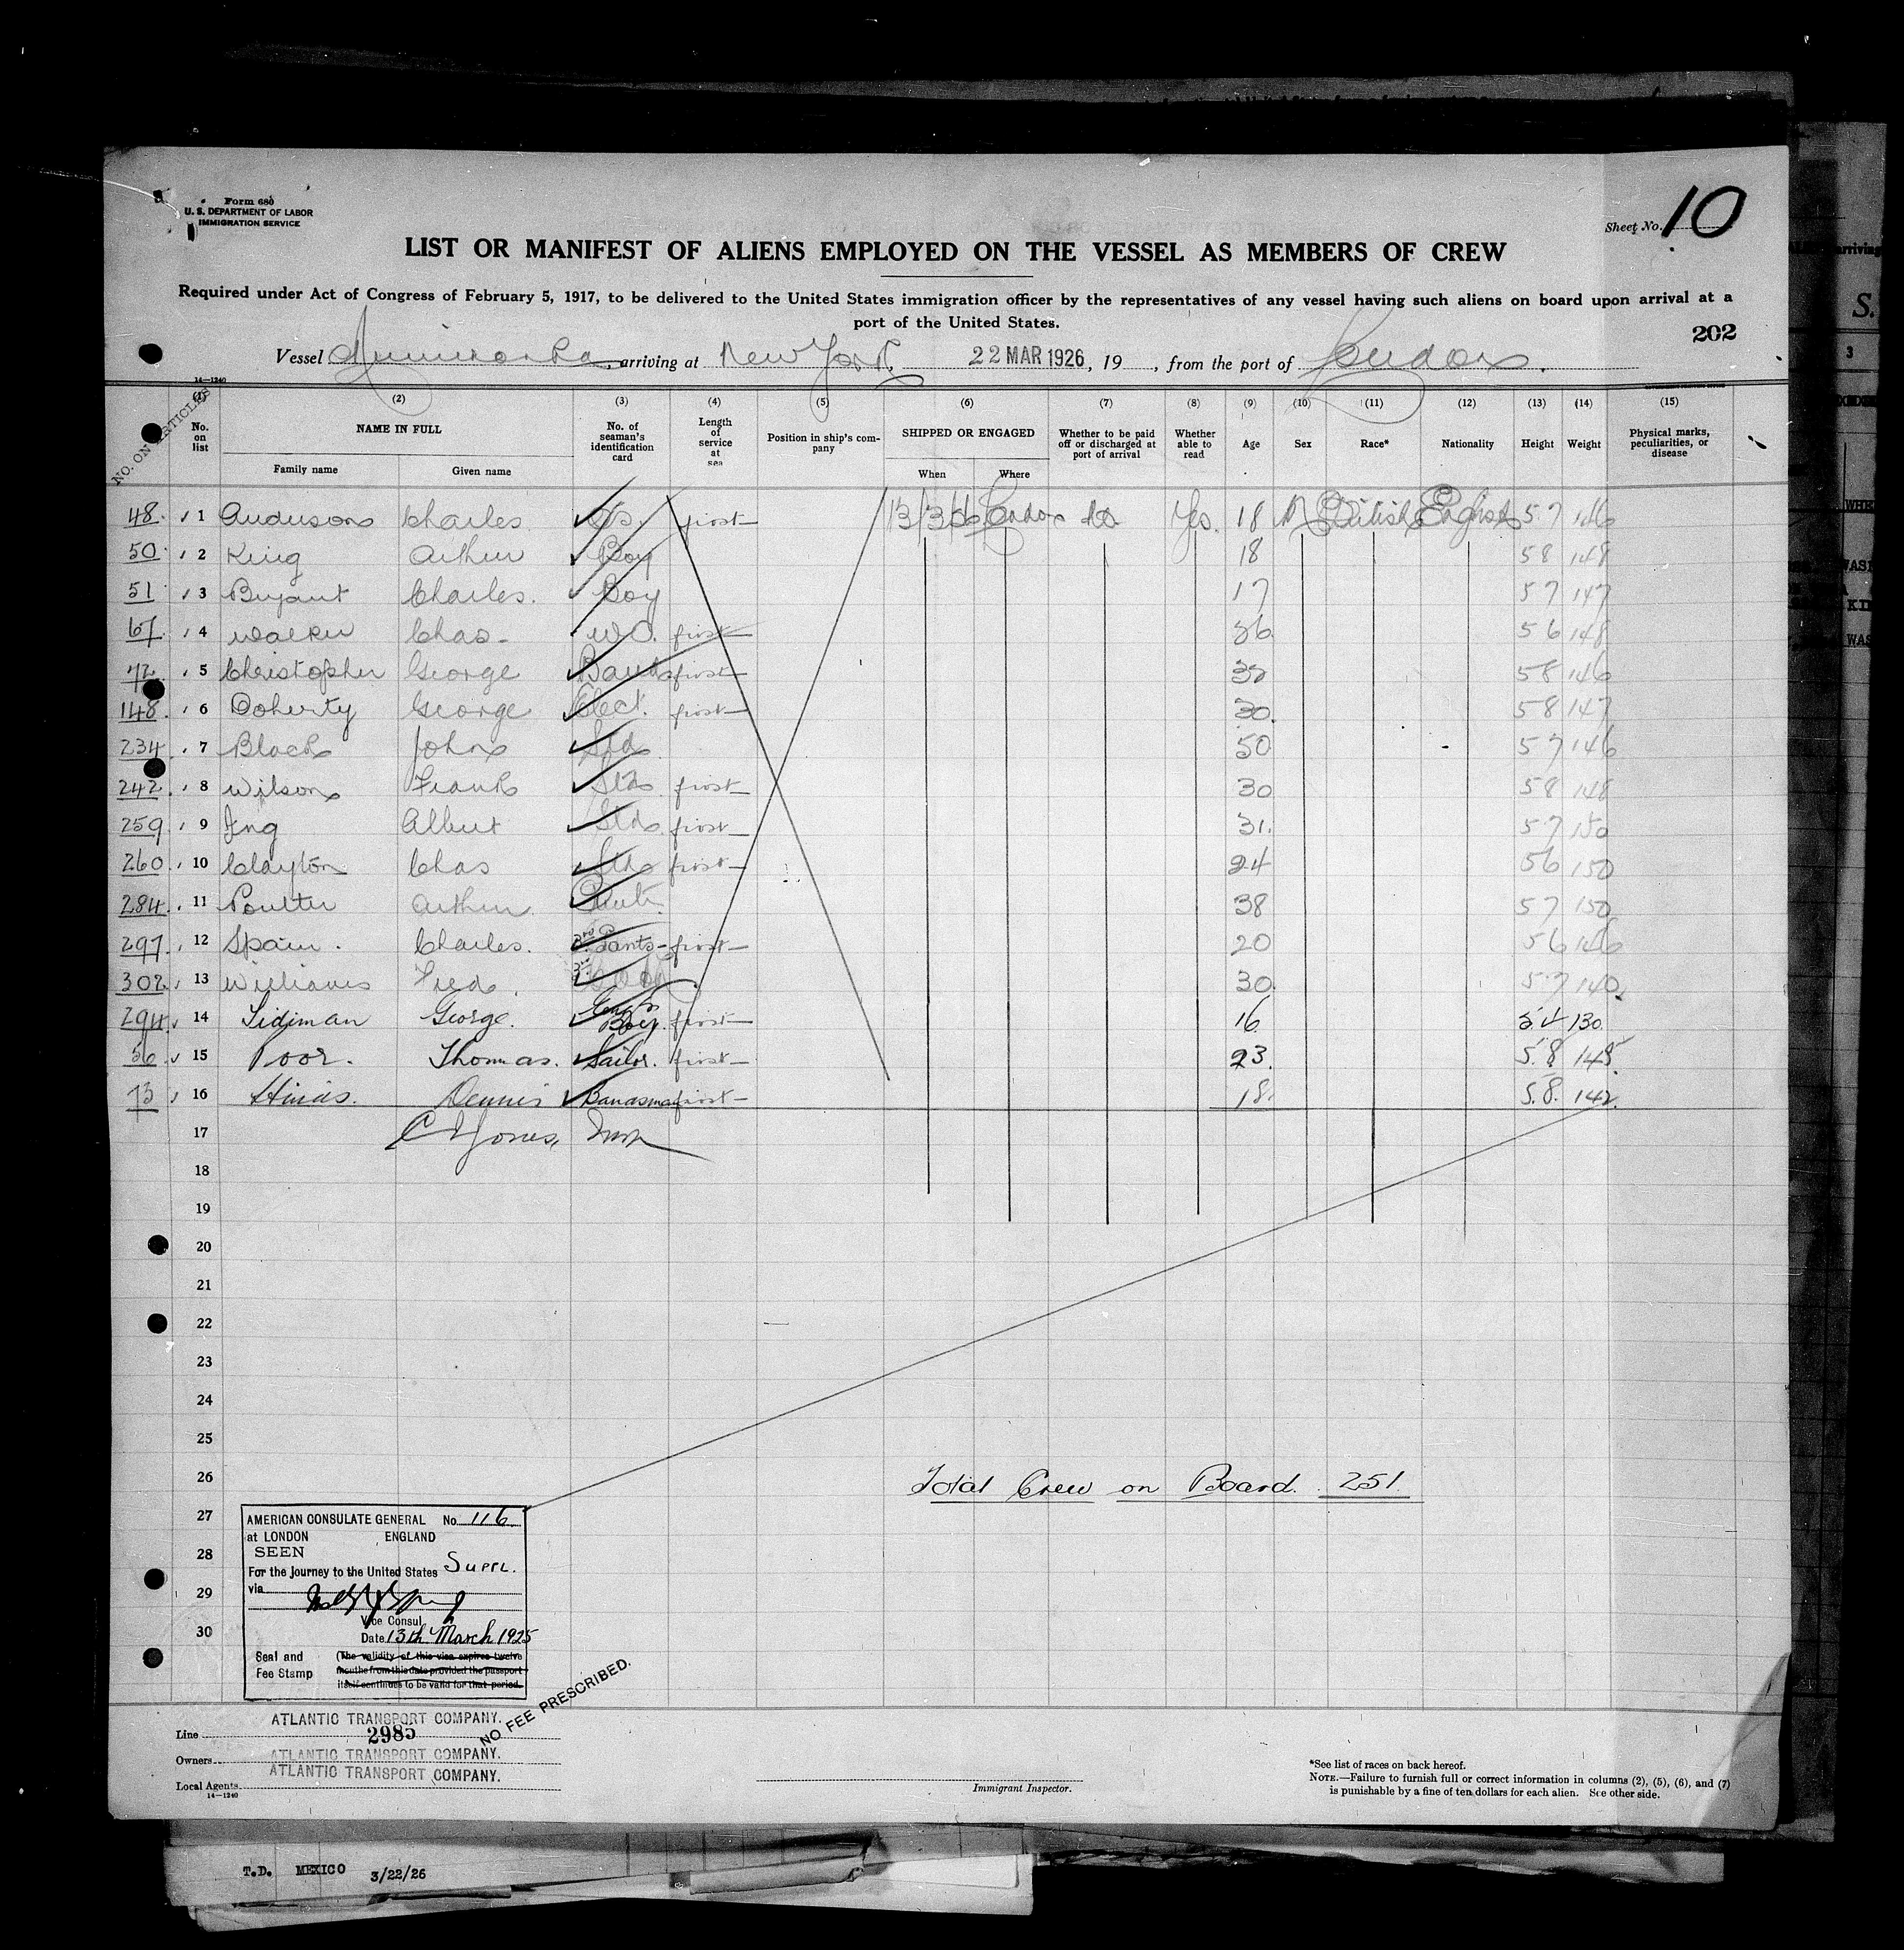 Form 680
U. S. DEPARTMENT OF LABOR
IMMIGRATION SERVICE
Sheet No. 10
LIST OR MANIFEST OF ALIENS EMPLOYED ON THE VESSEL AS MEMBERS OF CREW
Required under Act of Congress of February 5, 1917, to be delivered to the United States immigration officer by the representatives of any vessel having such aliens on board upon arrival at a
port of the United States.
202
Vessel , arriving at New York, 22 MAR 1926, 19 , from the port of London.
14—1240
NO. ON ARTICLES
(1) (2) (3) (4) (5) (6) (7) (8) (9) (10) (11) (12) (13) (14) (15)
No. on list NAME IN FULL Family name Given name No. of seaman's identification card Length of service at sea Position in ship's company SHIPPED OR ENGAGED When Where Whether to be paid off or discharged at port of arrival Whether able to read Age Sex Race* Nationality Height Weight Physical marks, peculiarities, or disease
48 1 Anderson Charles first 13/3/26 London No Yes. 18 British English 5 7 146
50 2 King Arthur Boy 18 5 8 148
51 3 Bryant Charles. Boy 17 5 7 147
67 4 Walker Chas - first 36 5 6 148
72 5 Christopher George first 5 8 146
148 6 Doherty George Elect. first 30. 5 8 147
234 7 Black John Std 50 5 7 146
242 8 Wilson Frank Std first 30 5 8 148
259 9 Ing Albert Std first 31. 5 7 150
260 10 Clayton Chas Std first 24 5 6 150
284 11 Poulter Arthur 38 5 7 150
297 12 Spain. Charles. Pants- first 20 5 6 146
302 13 Williams Fred. 30. 5 7 140
294 14 Tidiman George. Boy. first 16. 5 4 130
56 15 Poor. Thomas. Sailor. first 23. 5.8 148
73 16 Dennis first 18. 5.8. 142.
17 C Jones,
18
19
20
21
22
23
24
25
26 Total Crew on Board. 251.
27
28
29
30
AMERICAN CONSULATE GENERAL No. 116
at LONDON ENGLAND
SEEN
For the Journey to the United States Suppl.
via
Vice Consul
Date 13th March 1925
Seal and
Fee Stamp
(The validity of this visa expires twelve
months from this date provided the passport
itself continues to be valid for that period.
NO FEE PRESCRIBED.
Line ATLANTIC TRANSPORT COMPANY.
2985
Owners ATLANTIC TRANSPORT COMPANY.
Local Agents ATLANTIC TRANSPORT COMPANY.
14—1240
Immigrant Inspector.
*See list of races on back hereof.
NOTE.—Failure to furnish full or correct information in columns (2), (5), (6), and (7)
is punishable by a fine of ten dollars for each alien. See other side.
T.D. MEXICO 3/22/26